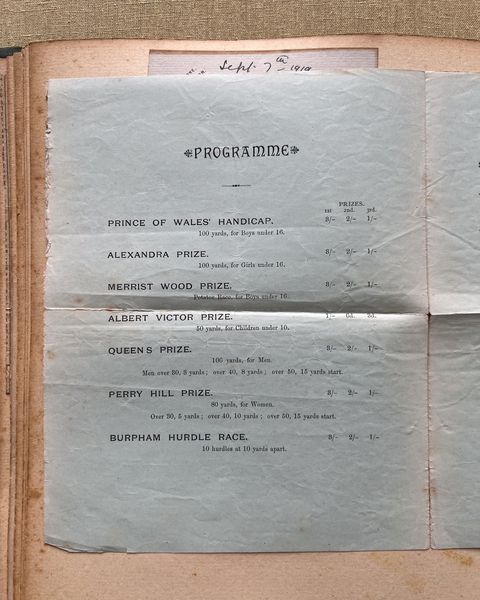 Sept. 7th 1919
PROGRAMME
PRIZES.
1st 2nd. 3rd.
PRINCE OF WALES' HANDICAP. 3/- 2/- 1/-
100 yards, for Boys under 16.
ALEXANDRA PRIZE. 3/- 2/- 1/-
100 yards, for Girls under 16.
MERRIST WOOD PRIZE. 3/- 2/- 1/-
Potatoe Race, for Boys under 16.
ALBERT VICTOR PRIZE. 1/- 6d. 3d.
50 yards, for Children under 10.
QUEENS PRIZE. 3/- 2/- 1/-
100 yards, for Men.
Men over 30, 3 yards; over 40, 8 yards; over 50, 15 yards start.
PERRY HILL PRIZE. 3/- 2/- 1/-
80 yards, for Women.
Over 30, 5 yards; over 40, 10 yards; over 50, 15 yards start.
BURPHAM HURDLE RACE. 3/- 2/- 1/-
10 hurdles at 10 yards apart.